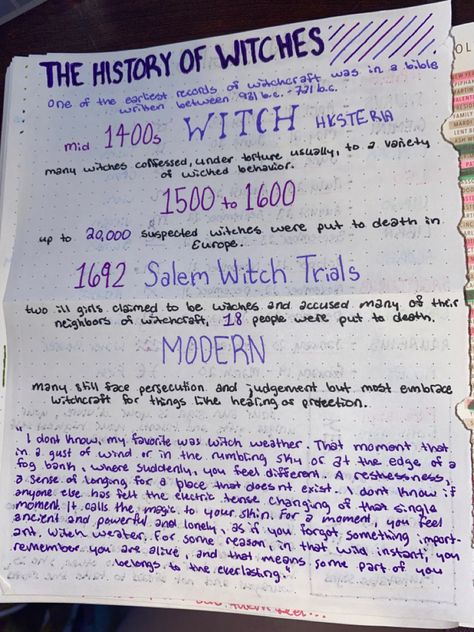 THE HISTORY OF WITCHES
One of the earliest records of witchcraft was in a bible
written between 931 b.c. - 721 b.c.
mid 1400s WITCH HYSTERIA
many witches coffessed, under torture usually, to a variety
of wicked behavior.
1500 to 1600
up to 20,000 suspected witches were put to death in
Europe.
1692 Salem Witch Trials
two ill girls claimed to be witches and accused many of their
neighbors of witchcraft, 18 people were put to death.
MODERN
many still face persecution and judgement but most embrace
witchcraft for things like healing or protection.
"I dont know, my favorite was witch weather. That moment that
in a gust of wind or in the rumbling sky or at the edge of a
fog bank, where suddenly, you feel different. A restlessness,
a sense of longing for a place that doesnt exist. I dont know if
anyone else has felt the electric tense changing of that single
moment. It calls the magic to your skin. For a moment, you feel
ancient and powerful and lonely, as if you forgot something import-
ant. Witch weater. For some reason, in that wild instant, you
remember you are alive, and that means some part of you
belongs to the everlasting."